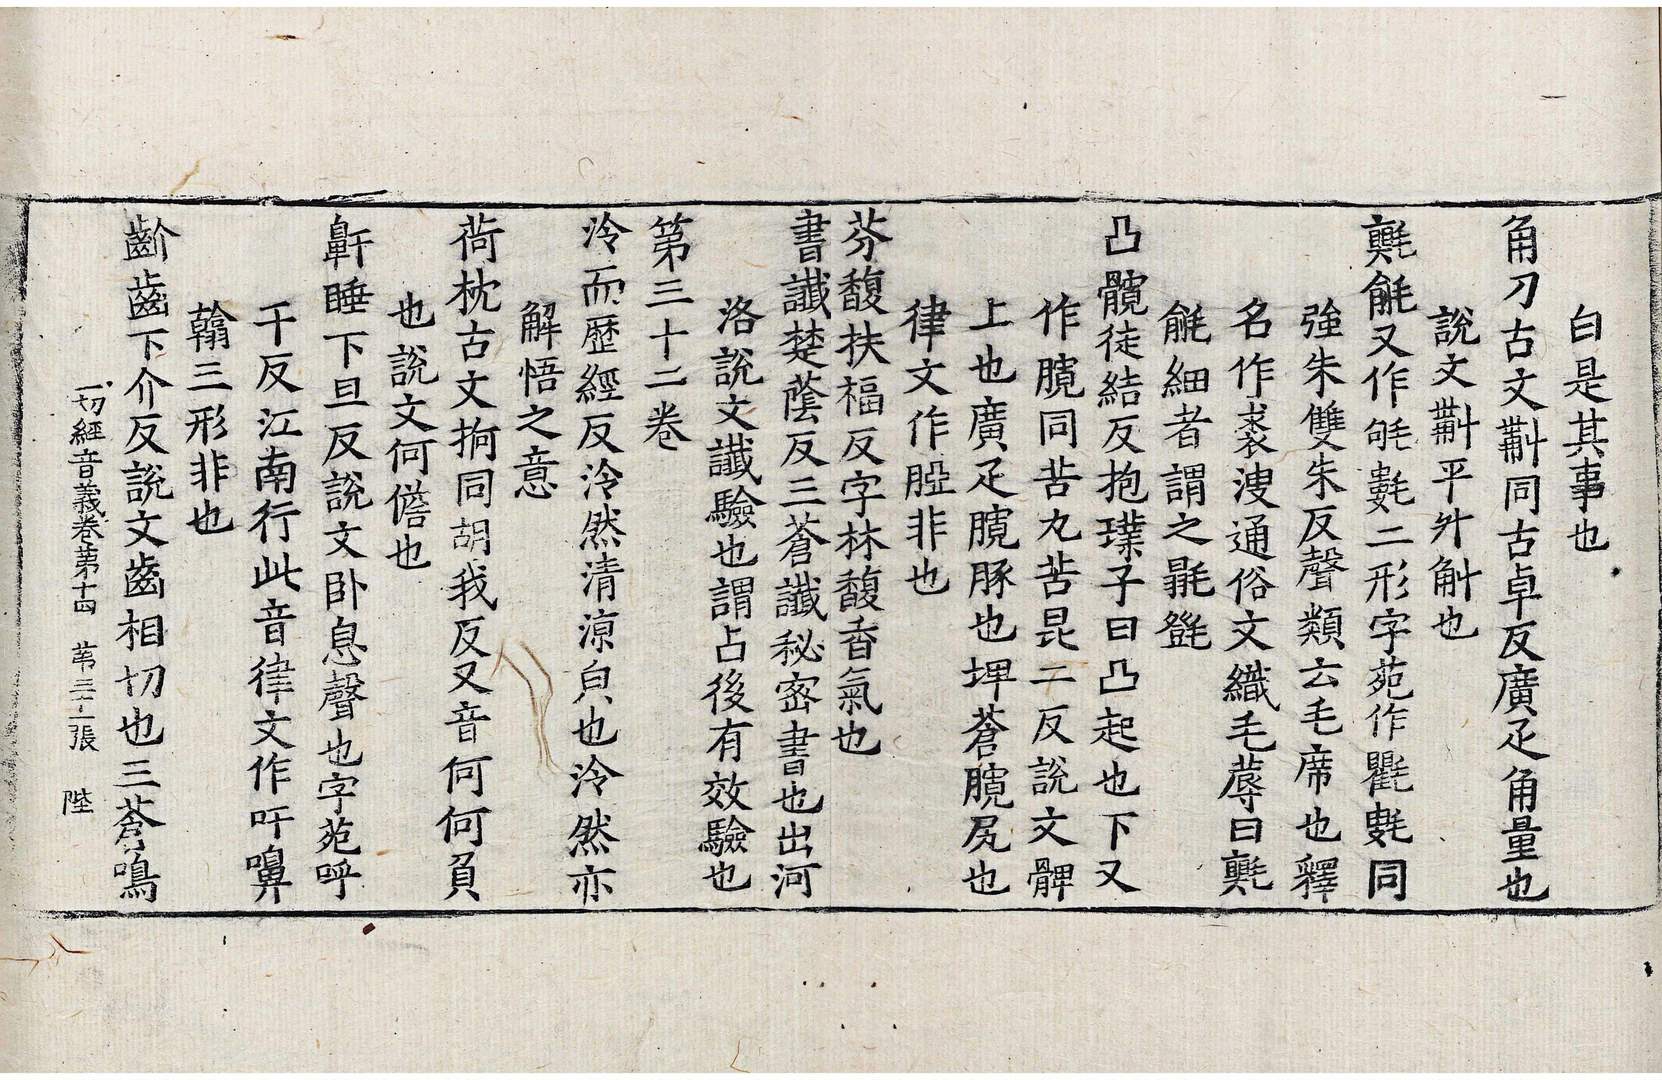 白是其事也
角刀古文㪺同古卓反廣疋角量也
說文㪺平斗斛也
氍毹又作㲣毾二形字苑作氍㲣同
強朱雙朱反聲類云毛席也釋
名作裘溲通俗文織毛蓐曰氍
毹細者謂之毾㲪
凸髖徒結反抱璞子曰凸起也下又
作臗同苦丸苦昆二反說文髀
上也廣疋臗豚也埤蒼臗尻也
律文作䏰非也
芬馥扶福反字林馥香氣也
書讖楚蔭反三蒼讖秘密書也出河
洛說文讖驗也謂占後有效驗也
第三十二卷
泠而歷經反泠然清涼皃也泠然亦
解悟之意
荷枕古文抲同胡我反又音何何負
也說文何儋也
鼾睡下旦反說文臥息聲也字苑呼
干反江南行此音律文作吁嚊
翰三形非也
齘齒下介反說文齒相切也三蒼鳴
一切經音義卷第十四 第三十一張 陛